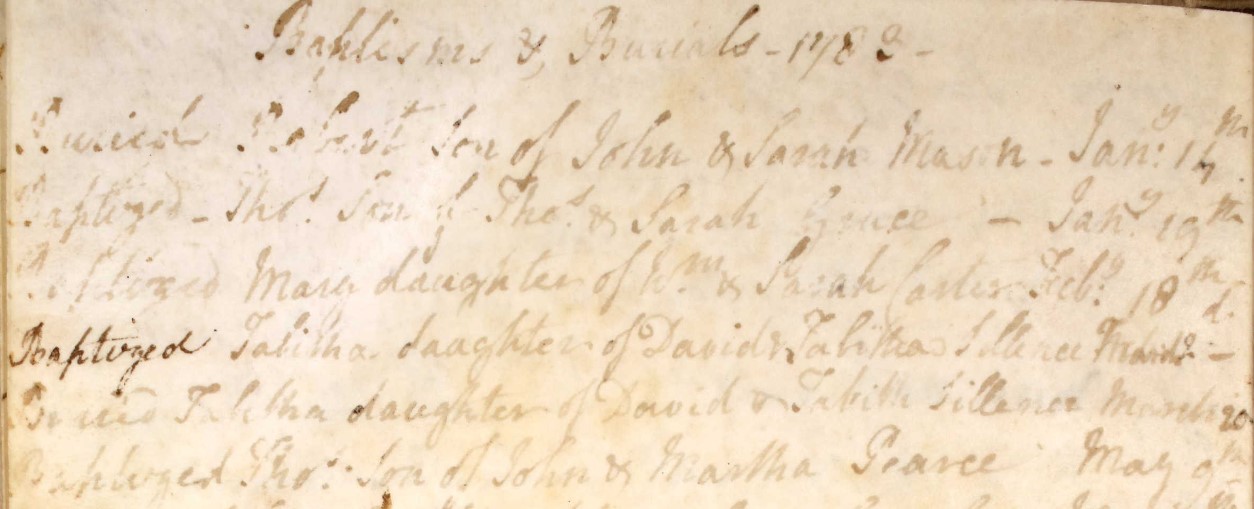 Baptisms & Burials - 1783 -
Buried Robert Son of John & Sarah Mason - Jan:y 14th
Baptized - Thos. Son of Thos. & Sarah - Jan:y 19th
Baptized Mary daughter of Wm. & Sarah Carter Feb:y 18th
Baptized Tabitha daughter of David & Tabitha Sillence March 2d -
Buried Tabitha daughter of David & Tabith Sillence March 20
Baptized Thos: Son of John & Martha Pearce May 9th